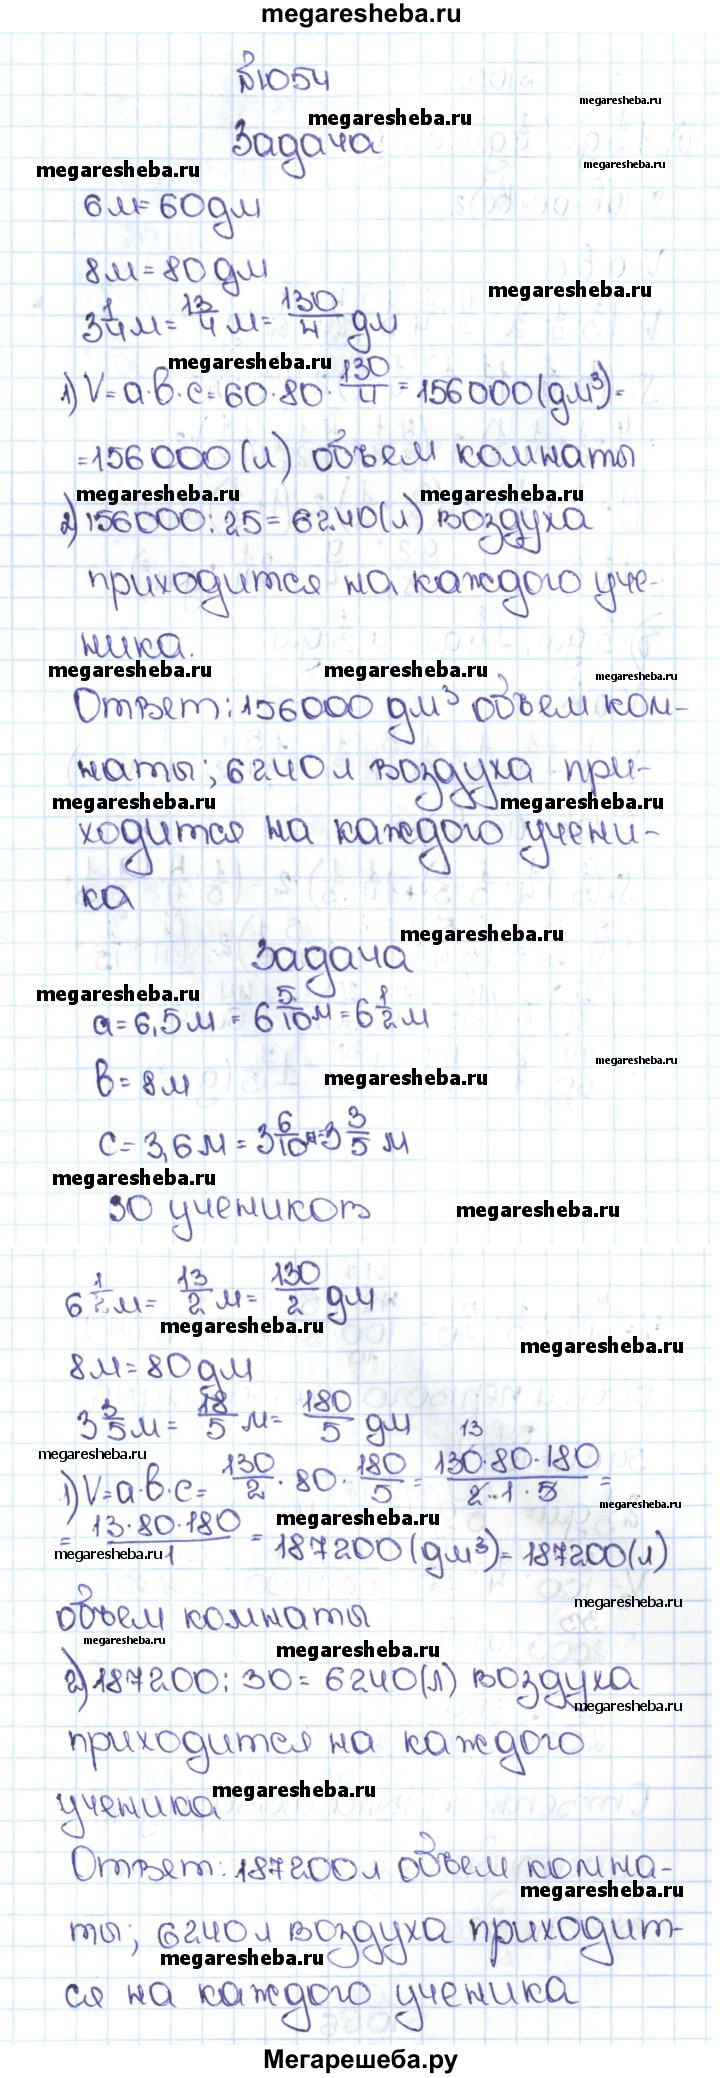 megaresheba.ru
№1054
megaresheba.ru
megaresheba.ru
Задача
megaresheba.ru
megaresheba.ru
6м=60дм
8м=80дм
megaresheba.ru
3 1/4 м= 13/4 м= 130/4 дм
megaresheba.ru
1) V=a·b·c=60·80· 130/4 =156000(дм³)=
=156000(л) объем комнаты
megaresheba.ru megaresheba.ru
2) 156000:25=6240(л) воздуха
приходится на каждого уче-
ника.
megaresheba.ru megaresheba.ru megaresheba.ru
Ответ: 156000 дм³ объем ком-
наты; 6240л воздуха при-
megaresheba.ru megaresheba.ru
ходится на каждого учени-
ка
megaresheba.ru
Задача
megaresheba.ru
a=6,5м = 6 5/10 м=6 1/2 м
megaresheba.ru
b=8м
megaresheba.ru
c=3,6м=3 6/10 м=3 3/5 м
megaresheba.ru
30 учеников
megaresheba.ru
6 1/2 м= 13/2 м= 130/2 дм
megaresheba.ru
megaresheba.ru
8м=80дм
3 3/5 м= 18/5 м= 180/5 дм
megaresheba.ru
13
1) V=a·b·c= 130/2 · 80 · 180/5 = 130·80·180/2·1·5 =
megaresheba.ru megaresheba.ru
= 13·80·180/1 = 187200(дм³)=187200(л)
megaresheba.ru
megaresheba.ru
объем комнаты
megaresheba.ru
megaresheba.ru
2) 187200:30=6240(л) воздуха
megaresheba.ru
приходится на каждого
megaresheba.ru
ученика
Ответ: 187200л объем комна-
megaresheba.ru
ты; 6240л воздуха приходит-
megaresheba.ru
ся на каждого ученика
Мегарешеба.ру